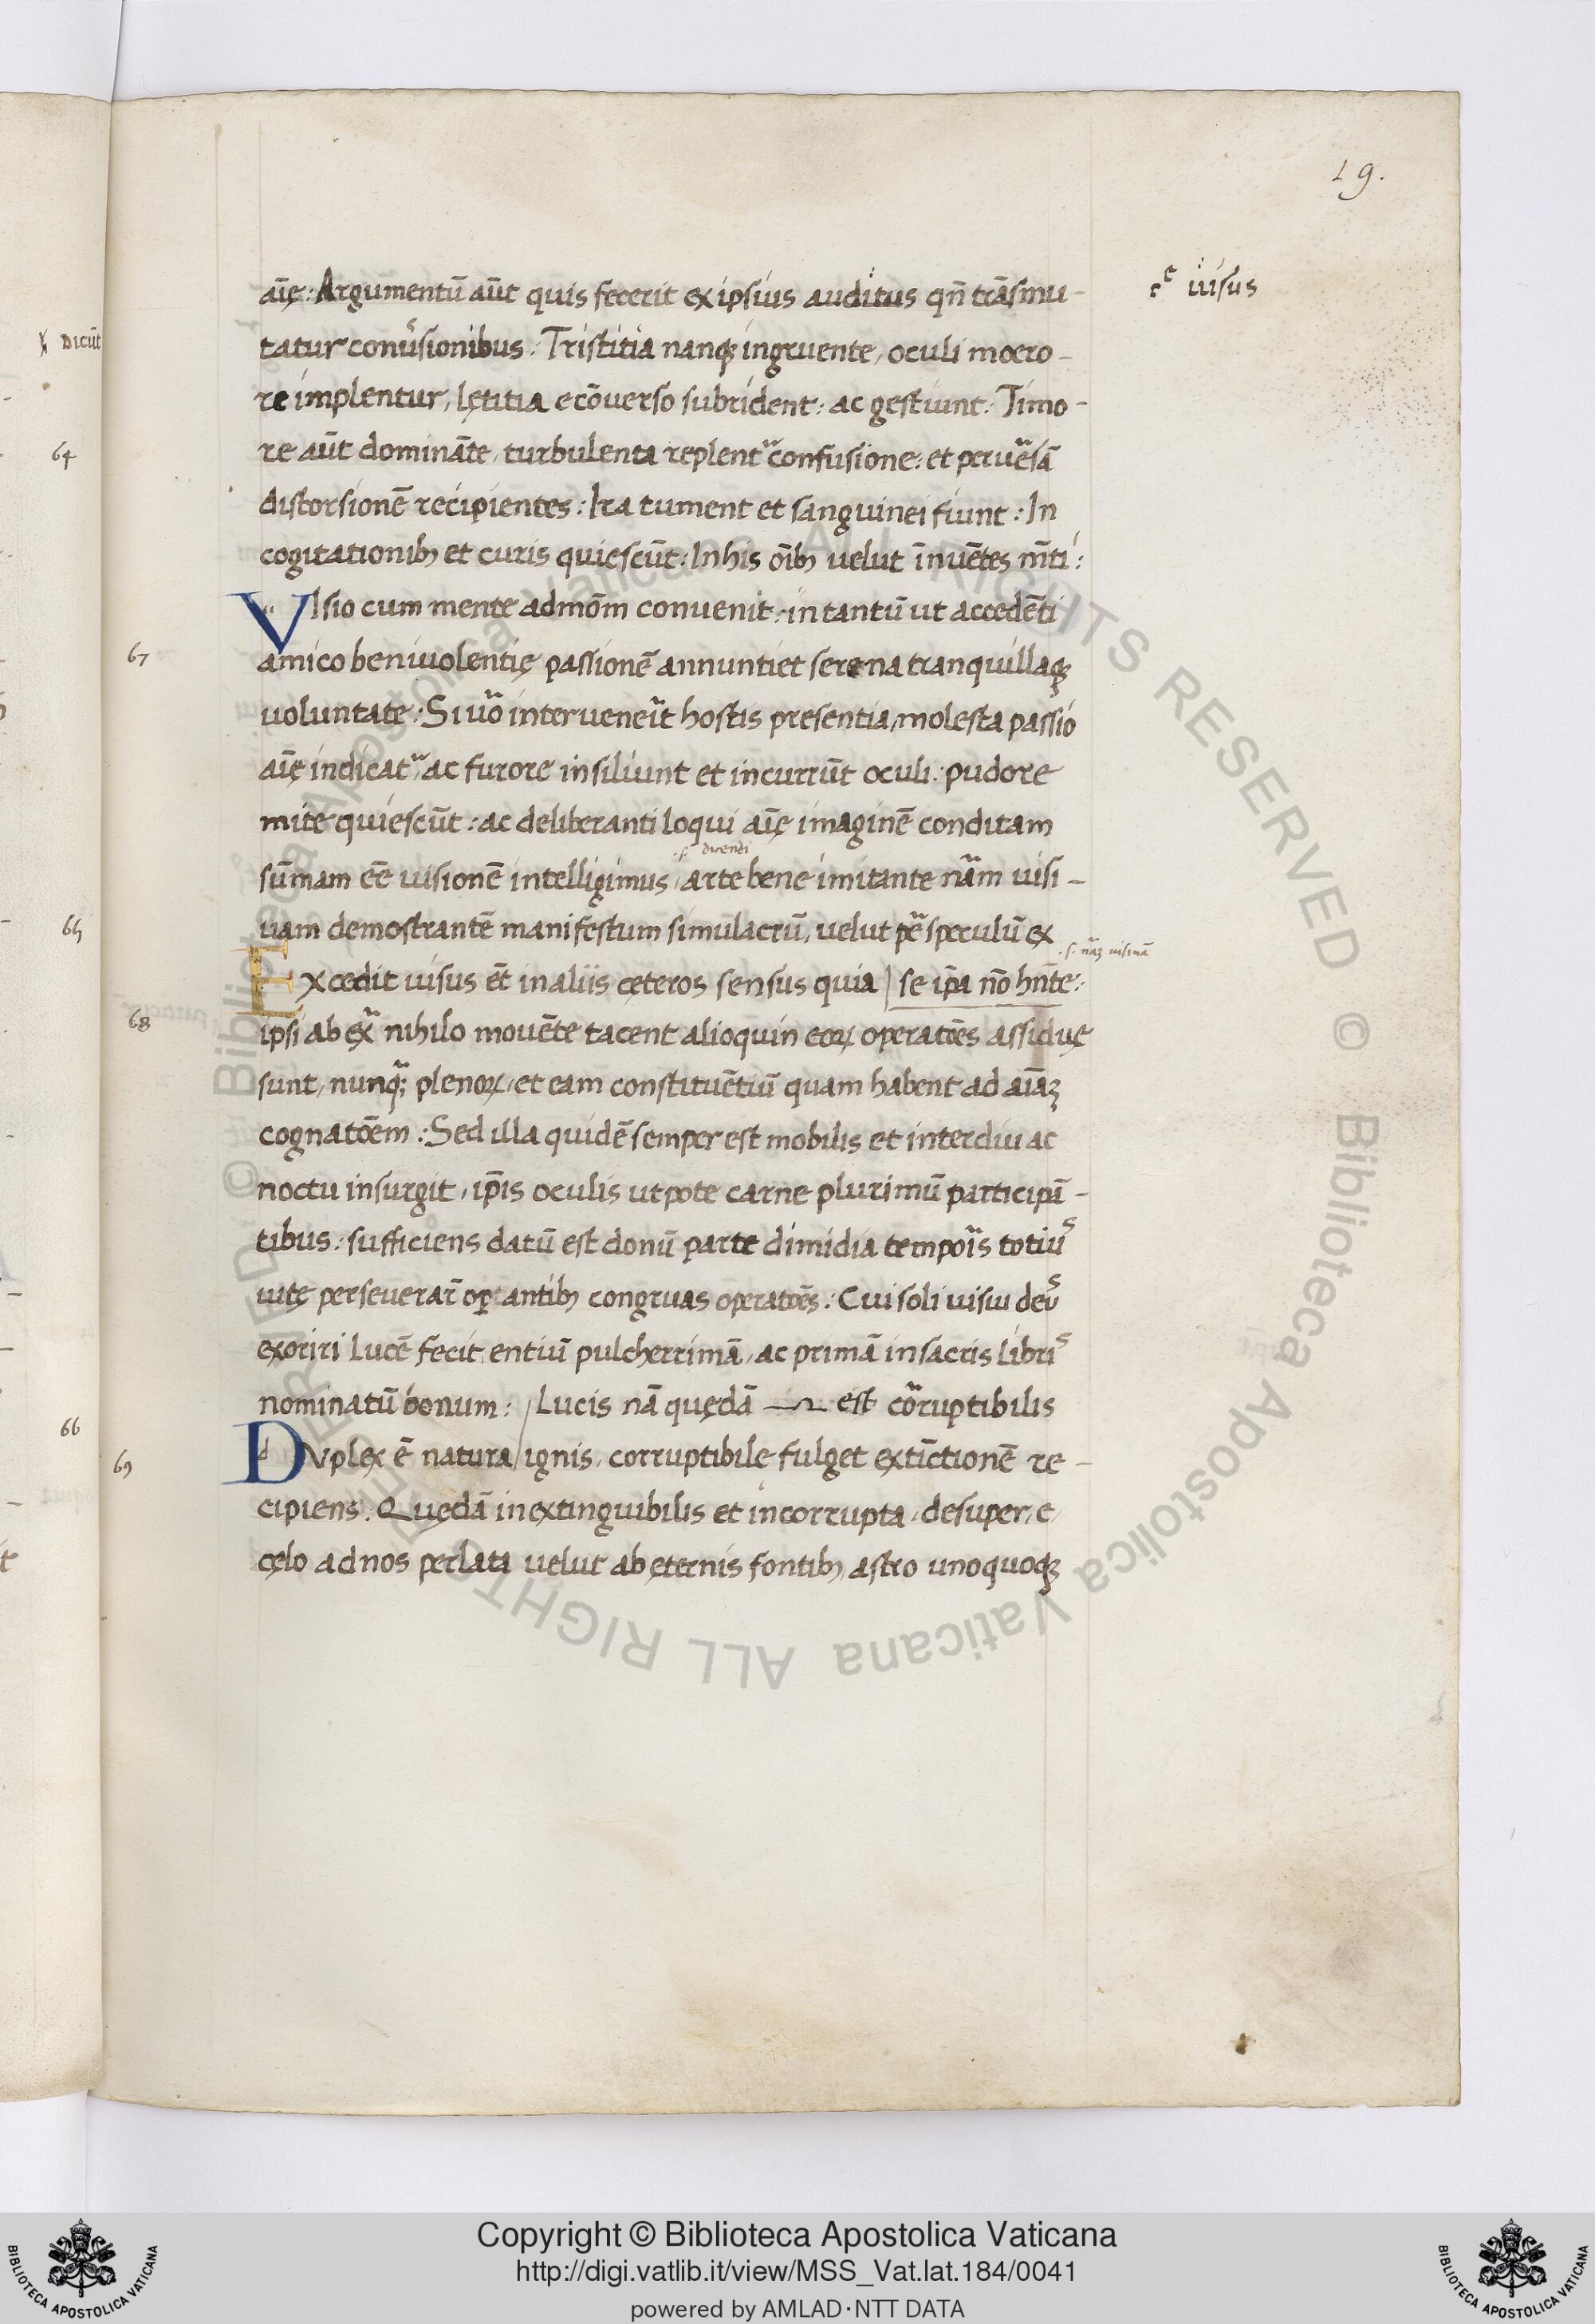 19.
aīę: Argumentū aūt quis fecerit ex ipsius auditus qn̄ trāsmu-
ċͨ uisus
tatur conūsionibus: Tristitia nanqꝫ ingruente, oculi moero-
re implentur, lętitia e cōverso subrident: ac gestiunt: Timo-
re aūt domināte, turbulenta replent᷑ confusione: et peruēsā
distorsionē recipientes: Ira tument et sanguinei fiunt: In
cogitationibꝫ et curis quiescūt: In his oībꝫ velut īnuētes m̄ti:
VIsio cum mente admōm convenit: in tantū ut accedēti
67
amico beniuolentię passionē annuntiet serena tranquillaqꝫ
uoluntate: Si uō interveneīt hostis presentia, molesta passio
aīę indicat᷑, ac furore insiliunt et incurrūt oculi: pudore
mite quiescūt: ac deliberanti loqui aīę imaginē conditam
.s. dicendi
sūmam eē uisionē intelligimus, arte bene imitante nām uisi-
uam demostrantē manifestum simulacrū, velut pē speculū ex
.s. nāꝫ uisiuā
Excedit uisus ēt in aliis cęteros sensus quia | se ip̄a nō hn̄te:
68
ipsi ab exª nihilo movēte tacent alioquin eoꝝ operatōēs assiduę
sunt, nunqªꝫ plenoꝝ, et eam constituētiū quam habent ad aīaꝫ
cognatōem: Sed illa quidē semper est mobilis et interdiu ac
noctu insurgit, ip̄is oculis utpote carne plurimū participā-
tibus: sufficiens datū est donū parte dimidia tempoīs totiuˢ
uitę perseverar̄ optantibꝫ congruas operatōēs: Cui soli uisui deuˢ
exoriri lucē fecit entiū pulcherrimā, ac primā in sacris libriˢ
nominatū bonum: / Lucis nā quędā est cōruptibilis
DVplex ē natura / ignis, corruptibile fulget extīctionē re-
69
cipiens. Quędā inextinguibilis et incorrupta, desuper, e
cęlo ad nos perlata velut ab ęternis fontibꝫ, astro unoquoqꝫ
dicūt
64
65
66
Copyright © Biblioteca Apostolica Vaticana
http://digi.vatlib.it/view/MSS_Vat.lat.184/0041
powered by AMLAD·NTT DATA
BIBLIOTECA APOSTOLICA VATICANA
BIBLIOTECA APOSTOLICA VATICANA
© Biblioteca Apostolica Vaticana ALL RIGHTS RESERVED © Biblioteca Apostolica Vaticana ALL RIGHTS RESERVED